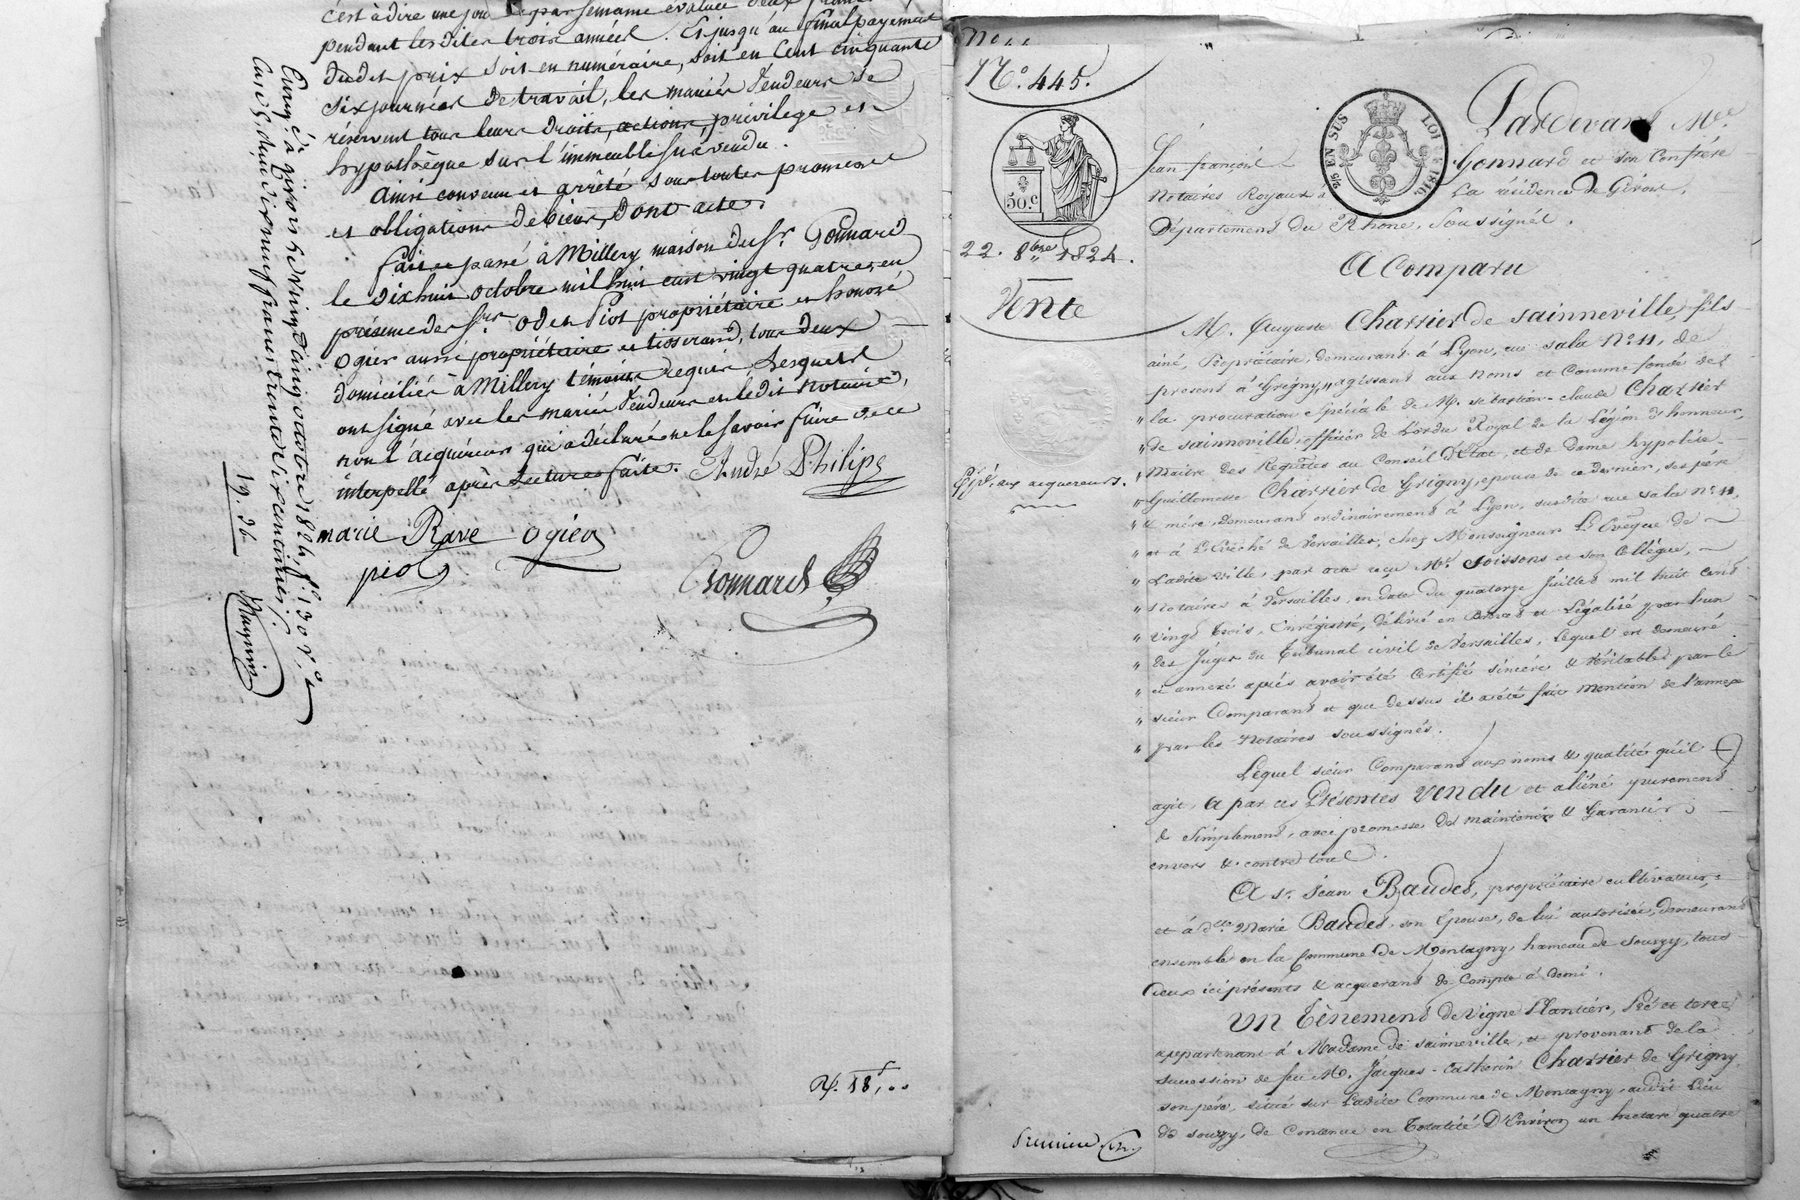 c'est à dire une par semaine évaluée deux
pendant les dites trois années. Et jusqu'au final payement
dudit prix soit en numéraire, soit en cent cinquante
six journées de travail, les mariés Vendeurs se
réservent tous leurs droits, actions, privilège et
hypothèque sur l'immeuble sus vendu.
Ainsi convenu et arrêté sous toutes promesses
et obligations de biens, Dont acte.
fait et passé à Millery maison du Sr. Gonnard
le dix huit octobre mil huit cent vingt quatre, en
présence des Srs. Odet Piot propriétaire et honoré
Ogier aussi propriétaire et tisserand, tous deux
domiciliés à Millery témoins requis Lesquels
ont signé avec les mariés Vendeurs et ledit notaire,
non l'acquéreur qui a déclaré ne le savoir faire de ce
interpellé après Lecture faite. André Philips
marie Rave ogier
piot Gonnard
Enregé à givors le vingt cinq octobre 1824, fo. 130 r.
19. 36
18,
No. 445.
50.c
22. 8bre 1824.
Vente
Expé. aux acquereurs.
2/5 EN SUS LOI DE 1816.
Pardevant Me.
Jean françois Gonnard et son Confrère
Notaires Royaux à La résidence de Givors,
Département du Rhône, Soussignés.
A Comparu
M. Auguste Charrier de Sainneville, fils
ainé, Propriétaire, demeurant à Lyon, rue sala No. 11, de
présent à Grigny, agissant aux noms et Comme fondé de
" la procuration Spéciale de M. Sébastien-claude Charrier
" de Sainneville, officier de L'ordre Royal de la Légion d'honneur,
" Maître des Requêtes au Conseil d'Etat, et de Dame hypolite-
" Guillemesse Charrier de Grigny, epouse de ce dernier, ses père
" & mère, Demeurant ordinairement à Lyon, susdite rue sala No. 11,
" et à L'Evêché de Versailles, chez Monseigneur L'Evêque de
" Ladite Ville, par acte reçu Me. Soissons et son Collègue,
" Notaires à Versailles, en date du quatorze Juillet mil huit cent
" Vingt trois, Enrégistré, délivré en Brevet et Légalisé par l'un
" des Juges du Tribunal civil de Versailles, Lequel est demeuré
" ci annexé après avoir été Certifié sincère & Véritable par le
" sieur Comparant et que dessus il a été fait mention de l'annexe
" par les Notaires soussignés.
Lequel sieur Comparant aux noms & qualités qu'il
agit, a par ces Présentes Vendu et aliéné purement
& Simplement, avec promesse de maintenir & Garantir
envers & contre tous.
A Sr. Jean Baudet, propriétaire cultivateur
et à dlle Marie Baudet, son épouse, de lui autorisée, demeurant
ensemble en la Commune de Montagny, hameau de Sourzy, tous
deux ici présents & acquerant de Compte à demi.
Un Tènement de Vigne Plantier, Pré et terre,
appartenant à Madame de Sainneville, et provenant de la
succession de feu M. Jacques-Catherin Charrier de Grigny,
son père, situé sur Ladite Commune de Montagny, audit Lieu
de Sourzy, de Contenue en Totalité D'Environ un hectare quatre
Première